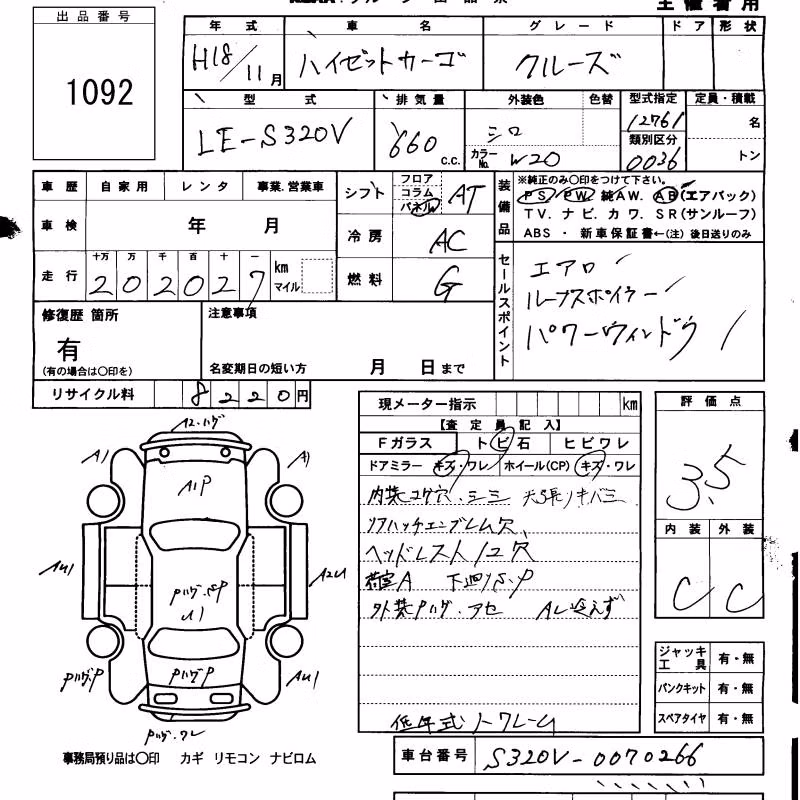 主催者用
出品番号
1092
年式 車名 グレード ドア 形状
H18/11月 ハイゼットカーゴ クルーズ
型式 排気量 外装色 色替 型式指定 定員・積載
LE-S320V 660 c.c. シロ 12761 名
カラーNo. W20 類別区分 0036 トン
車歴 自家用 レンタ 事業.営業車
車検 年 月
走行 十万 万 千 百 十 一
202027 km マイル
シフト フロア コラム パネル AT
冷房 AC
燃料 G
装備品
※純正のみ〇印をつけて下さい。
PS. PW. 純AW. AB(エアバック)
TV. ナビ. カワ. SR(サンルーフ)
ABS ・ 新車保証書←(注) 後日送りのみ
セールスポイント
エアロ
ルーフスポイラー
パワーウィンドウ
修復歴 箇所
有
(有の場合は〇印を)
注意事項
名変期日の短い方 月 日まで
リサイクル料 8220円
現メーター指示 km
【査定員記入】
Fガラス トビ石 ヒビワレ
ドアミラー キズ・ワレ ホイール(CP) キズ・ワレ
内装コゲ穴.シミ
リアハッチエンブレム穴
ヘッドレスト1コ穴
荷室A 下廻りS.P
外装Pハゲ.アセ AC冷えず
低年式
評価点
3.5
内装 外装
C C
ジャッキ 工具 有・無
パンクキット 有・無
スペアタイヤ 有・無
A2.ハゲ
A1 A1
A1P
AU1 A2U
Pハゲ.SP
U1
Pハゲ.P Pハゲ.P AU1
Pハゲ.ワレ
事務局預り品は〇印 カギ リモコン ナビロム
車台番号 S320V-0070266